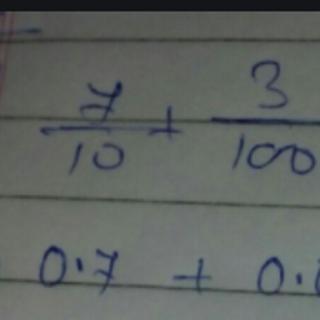 7/10 + 3/100
0.7 + 0.